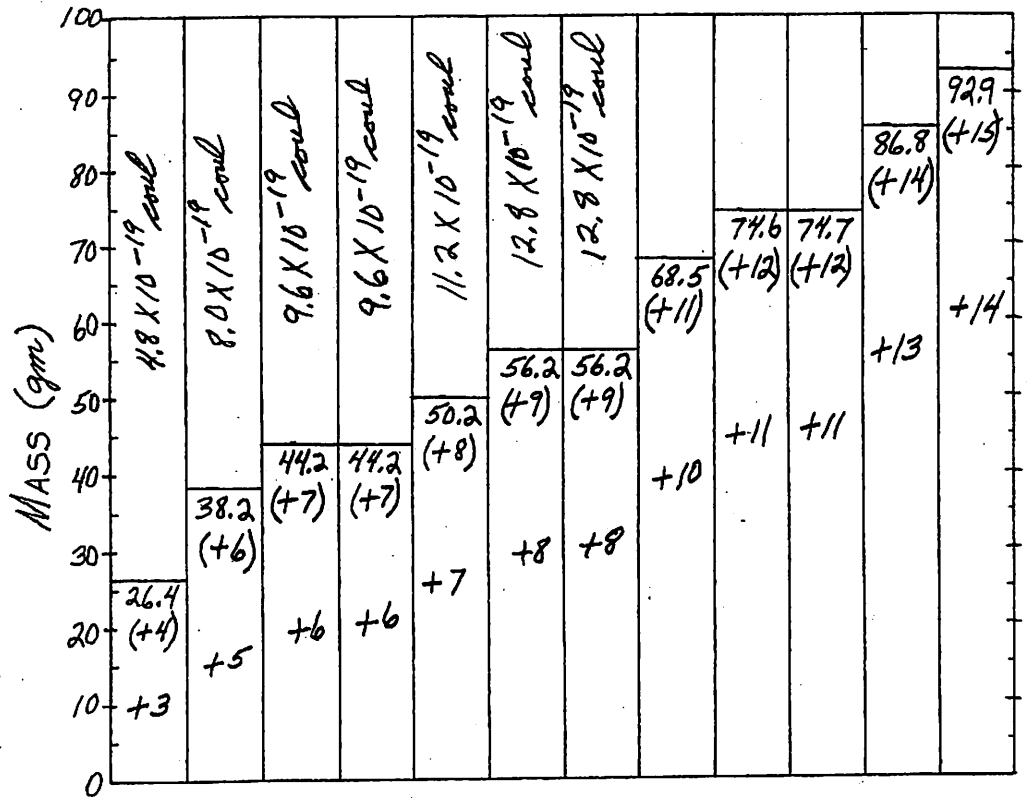 MASS (gm)
100
90
80
70
60
50
40
30
20
10
0
4.8 X 10⁻¹⁹ coul
26.4
(+4)
+3
8.0 X 10⁻¹⁹ coul
38.2
(+6)
+5
9.6 X 10⁻¹⁹ coul
44.2
(+7)
+6
9.6 X 10⁻¹⁹ coul
44.2
(+7)
+6
11.2 X 10⁻¹⁹ coul
50.2
(+8)
+7
12.8 X 10⁻¹⁹ coul
56.2
(+9)
+8
12.8 X 10⁻¹⁹ coul
56.2
(+9)
+8
68.5
(+11)
+10
74.6
(+12)
+11
74.7
(+12)
+11
86.8
(+14)
+13
92.9
(+15)
+14